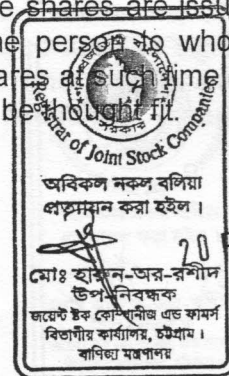 e shares are issu
ne person to who
ares at such time
be thought fit.
সরকার
Registrar of Joint Stock Companies
অবিকল নকল বলিয়া
প্রত্যায়ন করা হইল ।
20
মোঃ হারুন-অর-রশীদ
উপ-নিবন্ধক
জয়েন্ট ষ্টক কোম্পানীজ এন্ড ফার্মস
বিভাগীয় কার্যালয়, চট্টগ্রাম ।
বাণিজ্য মন্ত্রণালয়